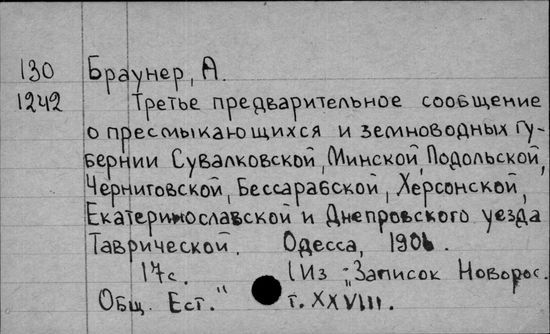 130 Браунер, А.
1242 Третье предварительное сообщение
о пресмыкающихся и земноводных гу-
бернии Сувалковской, Минской, Подольской,
Черниговской, Бессарабской, Херсонской,
Екатеринославской и Днепровского уезда
Таврической. Одесса, 1906.
17с. (Из „Записок Новорос.
Общ. Ест." т. XXVIII.